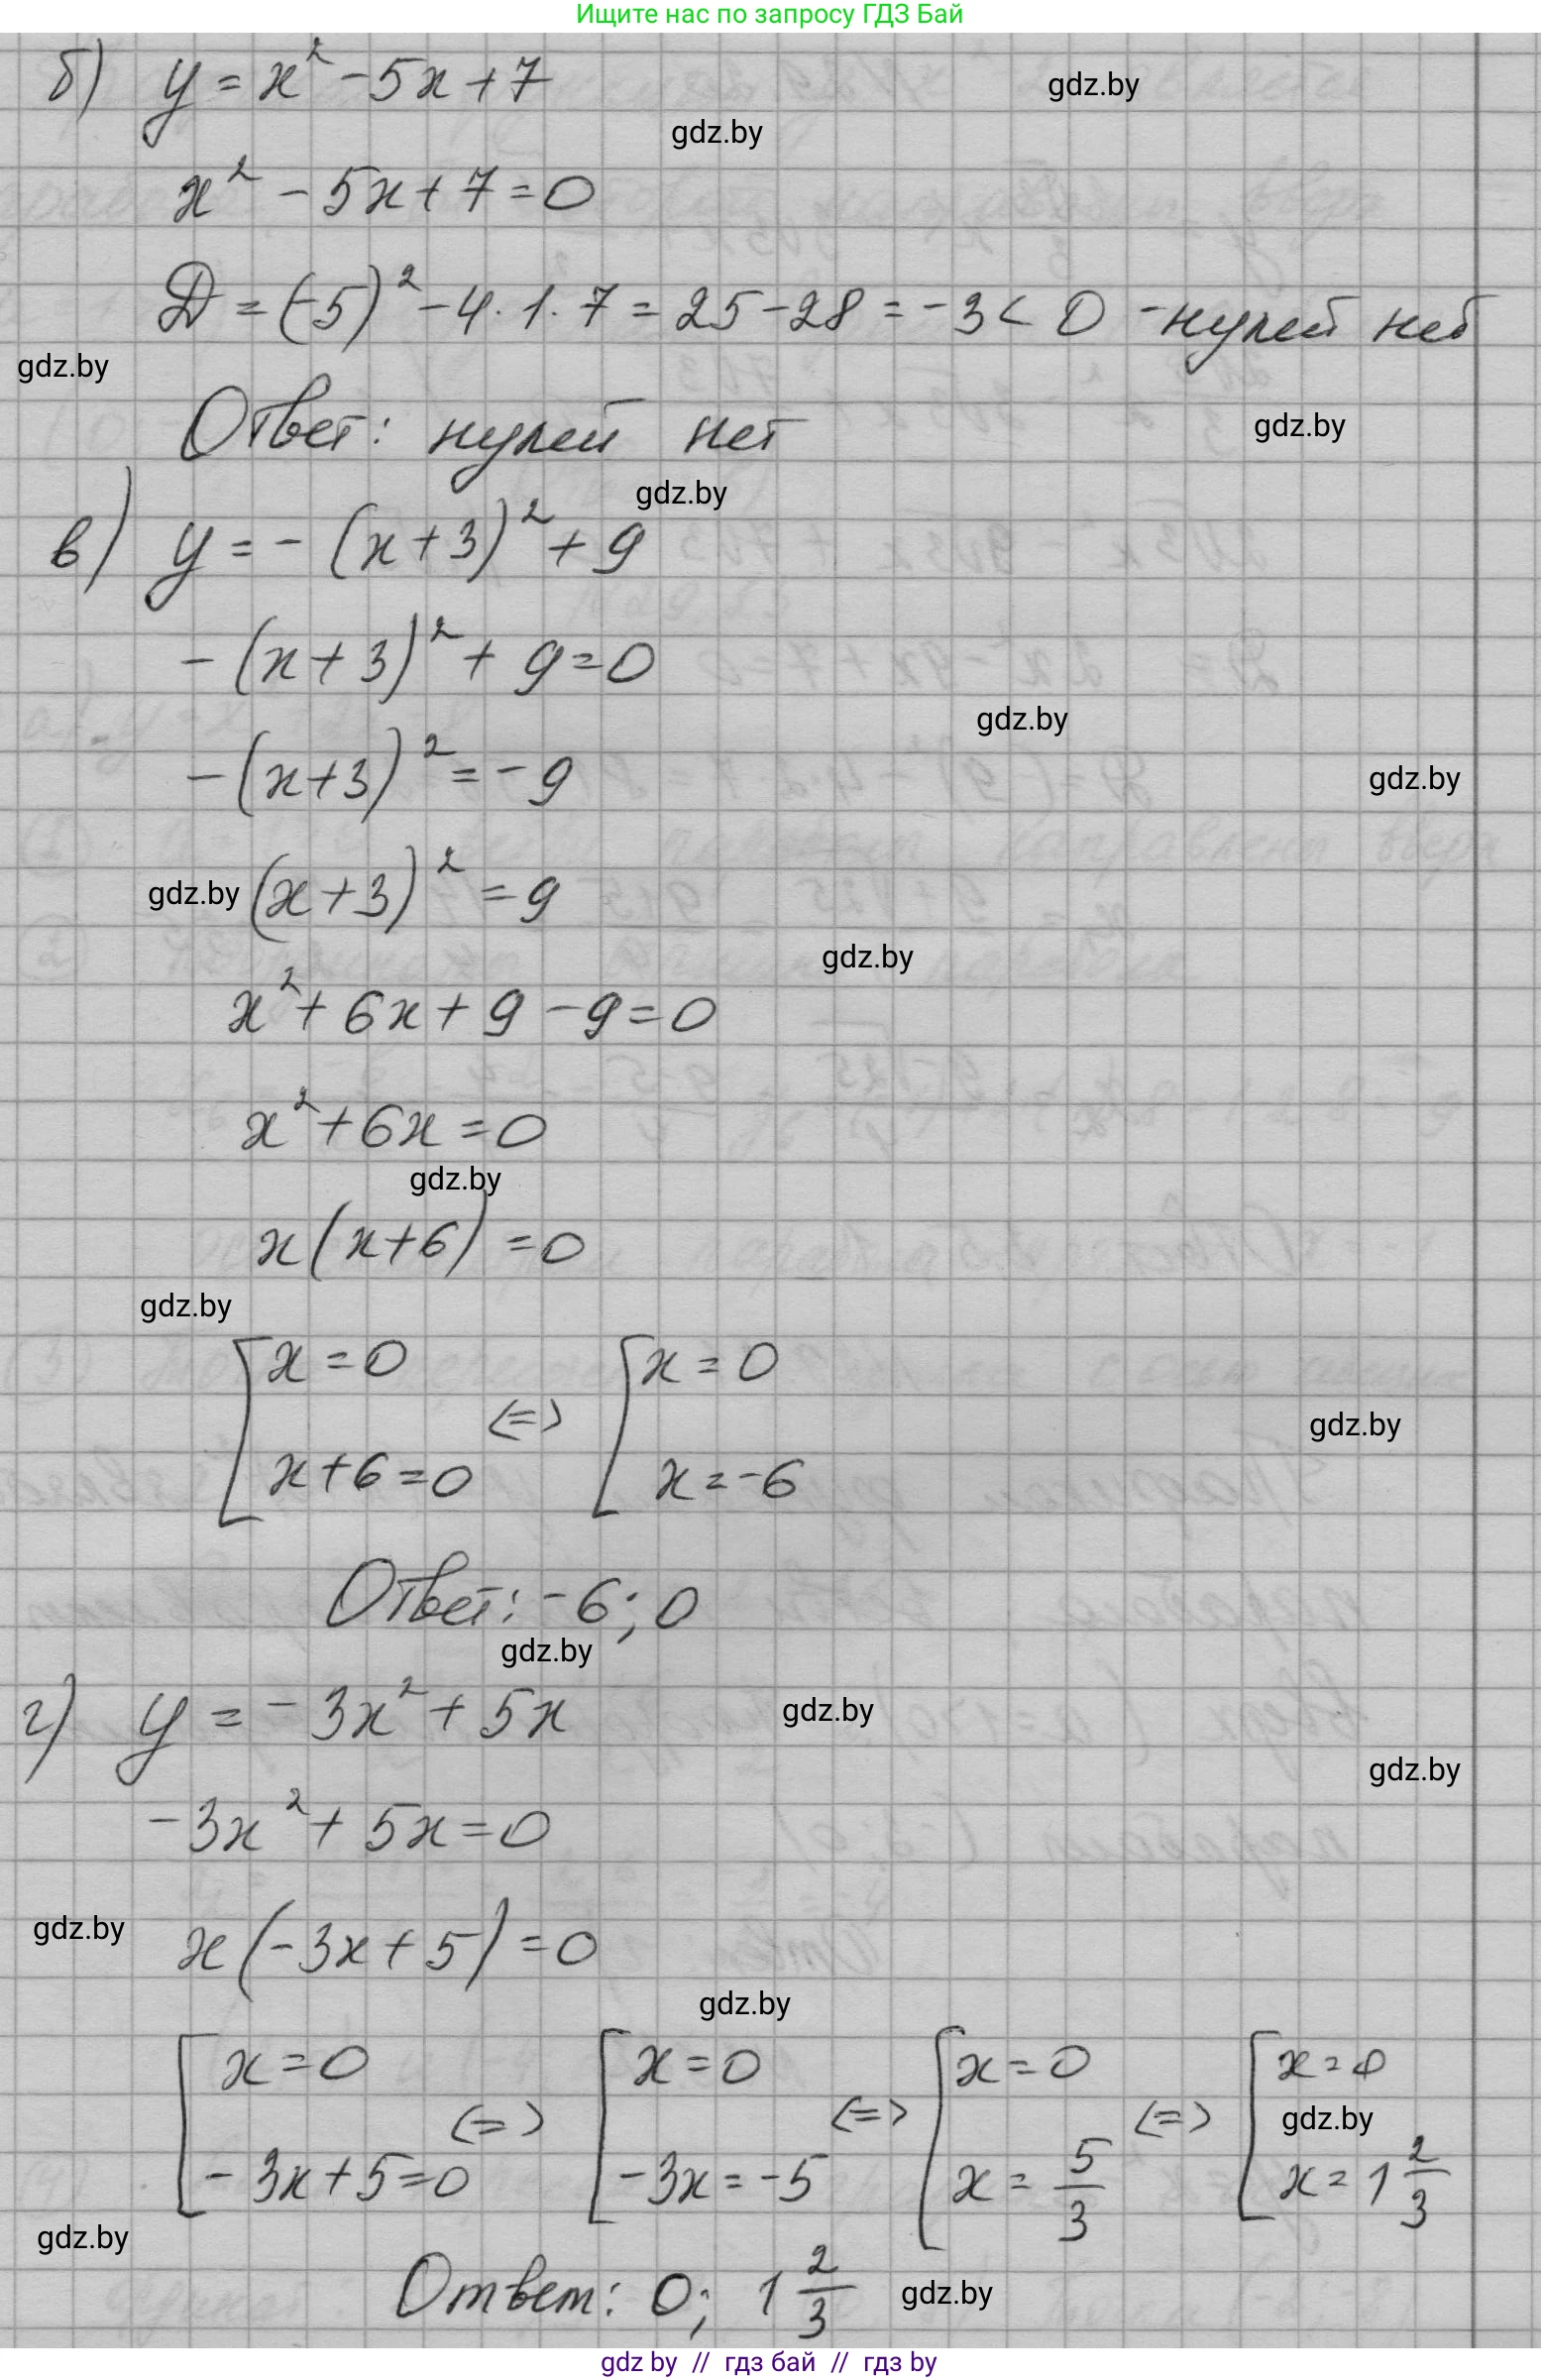 Ищите нас по запросу ГДЗ Бай
б) y = x² - 5x + 7
gdz.by
gdz.by
x² - 5x + 7 = 0
D = (-5)² - 4 · 1 · 7 = 25 - 28 = -3 < 0 - нулей нет
gdz.by
Ответ: нулей нет
gdz.by
gdz.by
в) y = - (x + 3)² + 9
- (x + 3)² + 9 = 0
gdz.by
- (x + 3)² = - 9
gdz.by
gdz.by (x + 3)² = 9
gdz.by
x² + 6x + 9 - 9 = 0
x² + 6x = 0
gdz.by
x (x + 6) = 0
gdz.by
[ x = 0 [ x = 0
<=>
gdz.by
x + 6 = 0 x = -6
Ответ: -6; 0
gdz.by
г) y = - 3x² + 5x
gdz.by
gdz.by
- 3x² + 5x = 0
gdz.by
x (- 3x + 5) = 0
gdz.by
[ x = 0 [ x = 0 [ x = 0 [ x = 0
<=> <=> <=> gdz.by
- 3x + 5 = 0 - 3x = -5 x = 5/3 x = 1 2/3
gdz.by
Ответ: 0; 1 2/3
gdz.by
gdz by // гдз бай // гдз by